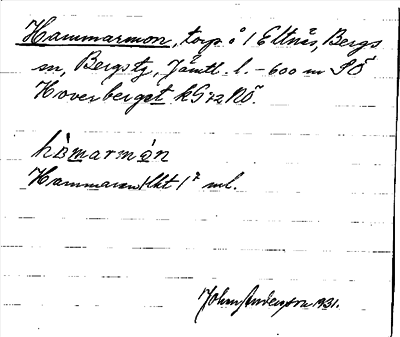 Hammarmon, torp å 1 Eltnäs, Bergs
sn, Bergs tg, Jämtl. l. – 600 m SÖ
Hoverberget kG 72 NÖ.
hàmarmón
Hammaren lkt 1⁷ ml.
John Anderson 1931.